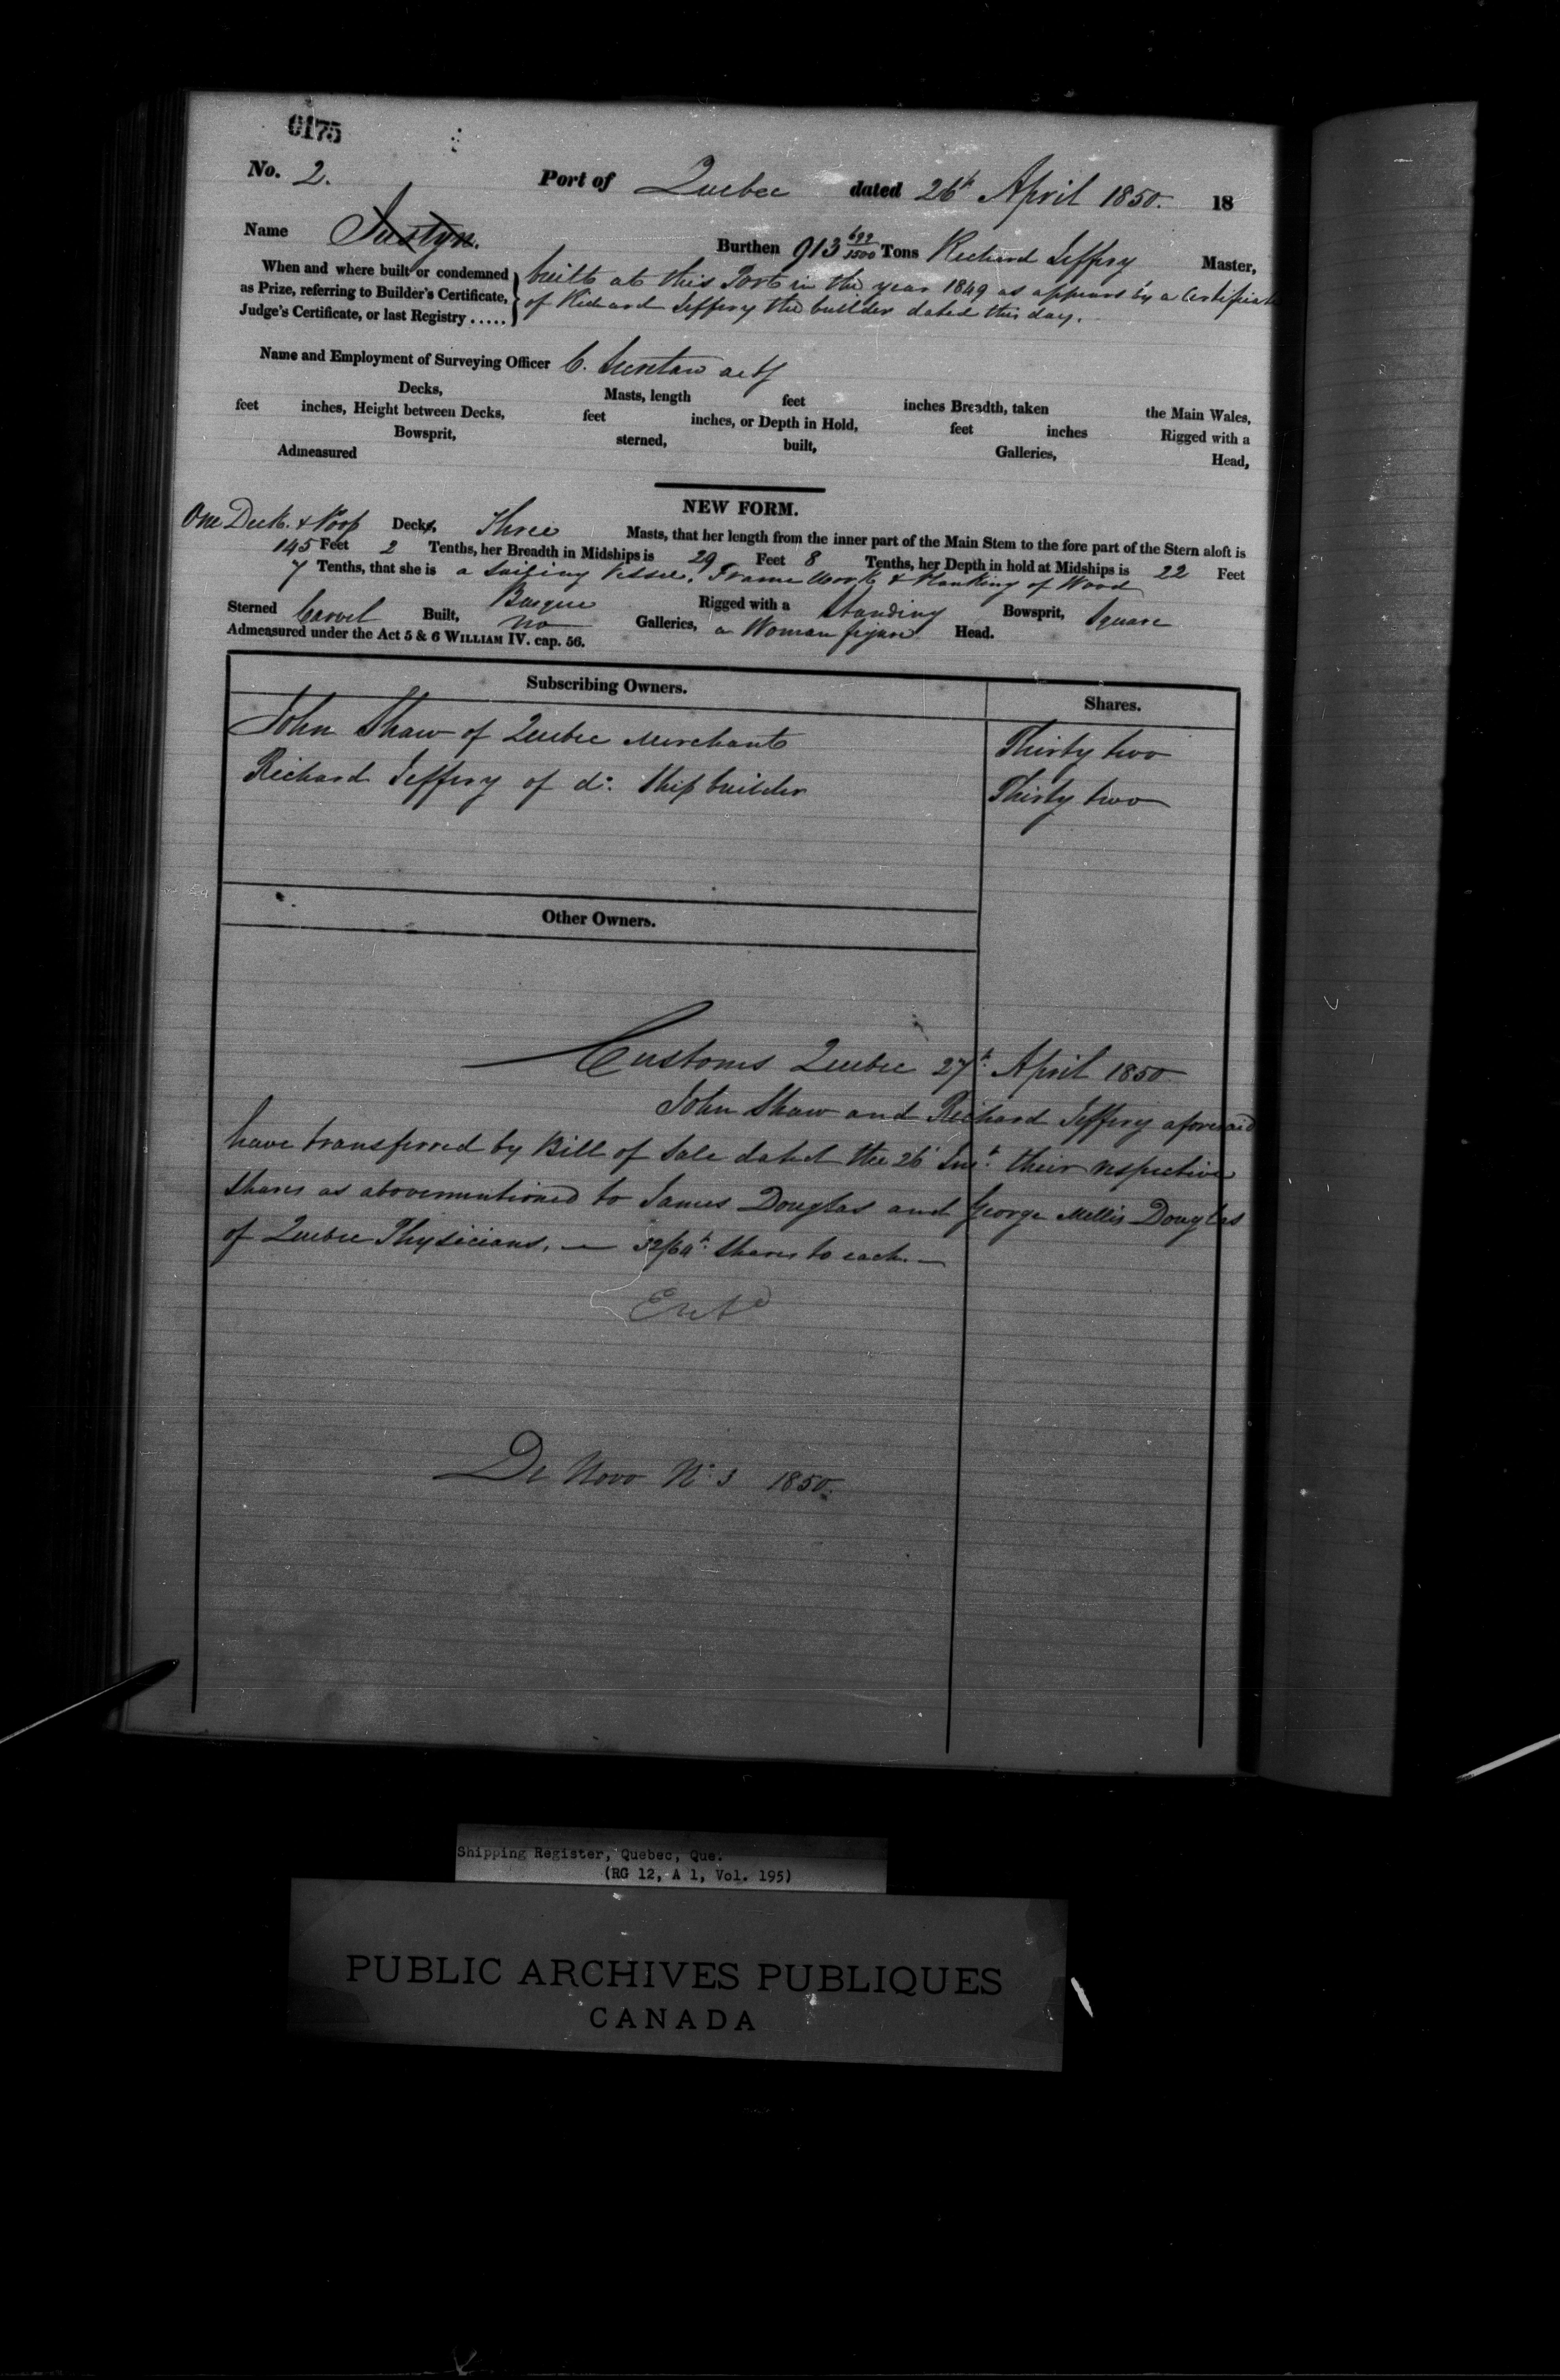 0175
No. 2. Port of Quebec dated 26th April 1850. 18
Name Justyn. Burthen 913 699/3500 Tons Richard Jeffery Master,
When and where built or condemned as Prize, referring to Builder's Certificate, Judge's Certificate, or last Registry . . . . .
built at this Port in the year 1849 as appears by a Certificate
of Richard Jeffery the builder dated this day.
Name and Employment of Surveying Officer C.
Decks, Masts, length feet inches Breadth, taken the Main Wales,
feet inches, Height between Decks, feet inches, or Depth in Hold, feet inches Rigged with a
Bowsprit, sterned, built, Galleries, Head,
Admeasured
NEW FORM.
One Deck & Poop Decks, Three Masts, that her length from the inner part of the Main Stem to the fore part of the Stern aloft is
145 Feet 2 Tenths, her Breadth in Midships is 29 Feet 8 Tenths, her Depth in hold at Midships is 22 Feet
7 Tenths, that she is a Sailing Vessel. Frame Work & Planking of Wood
Barque Rigged with a Standing Bowsprit, Square
Sterned Carvel Built, no Galleries, a Woman figure Head.
Admeasured under the Act 5 & 6 WILLIAM IV. cap. 56.
Subscribing Owners. Shares.
John Shaw of Quebec Merchant Thirty two
Richard Jeffery of do. Ship builder Thirty two
Other Owners.
Customs Quebec 27th April 1850
John Shaw and Richard Jeffery aforesaid
have transferred by Bill of Sale dated the 26 Inst. their respective
shares as abovementioned to James Douglas and George Mellis Douglas
of Quebec Physicians, — 32/64th shares to each. —
Entd
De Novo No. 3 1850.
Shipping Register, Quebec, Que.
(RG 12, A 1, Vol. 195)
PUBLIC ARCHIVES PUBLIQUES
CANADA